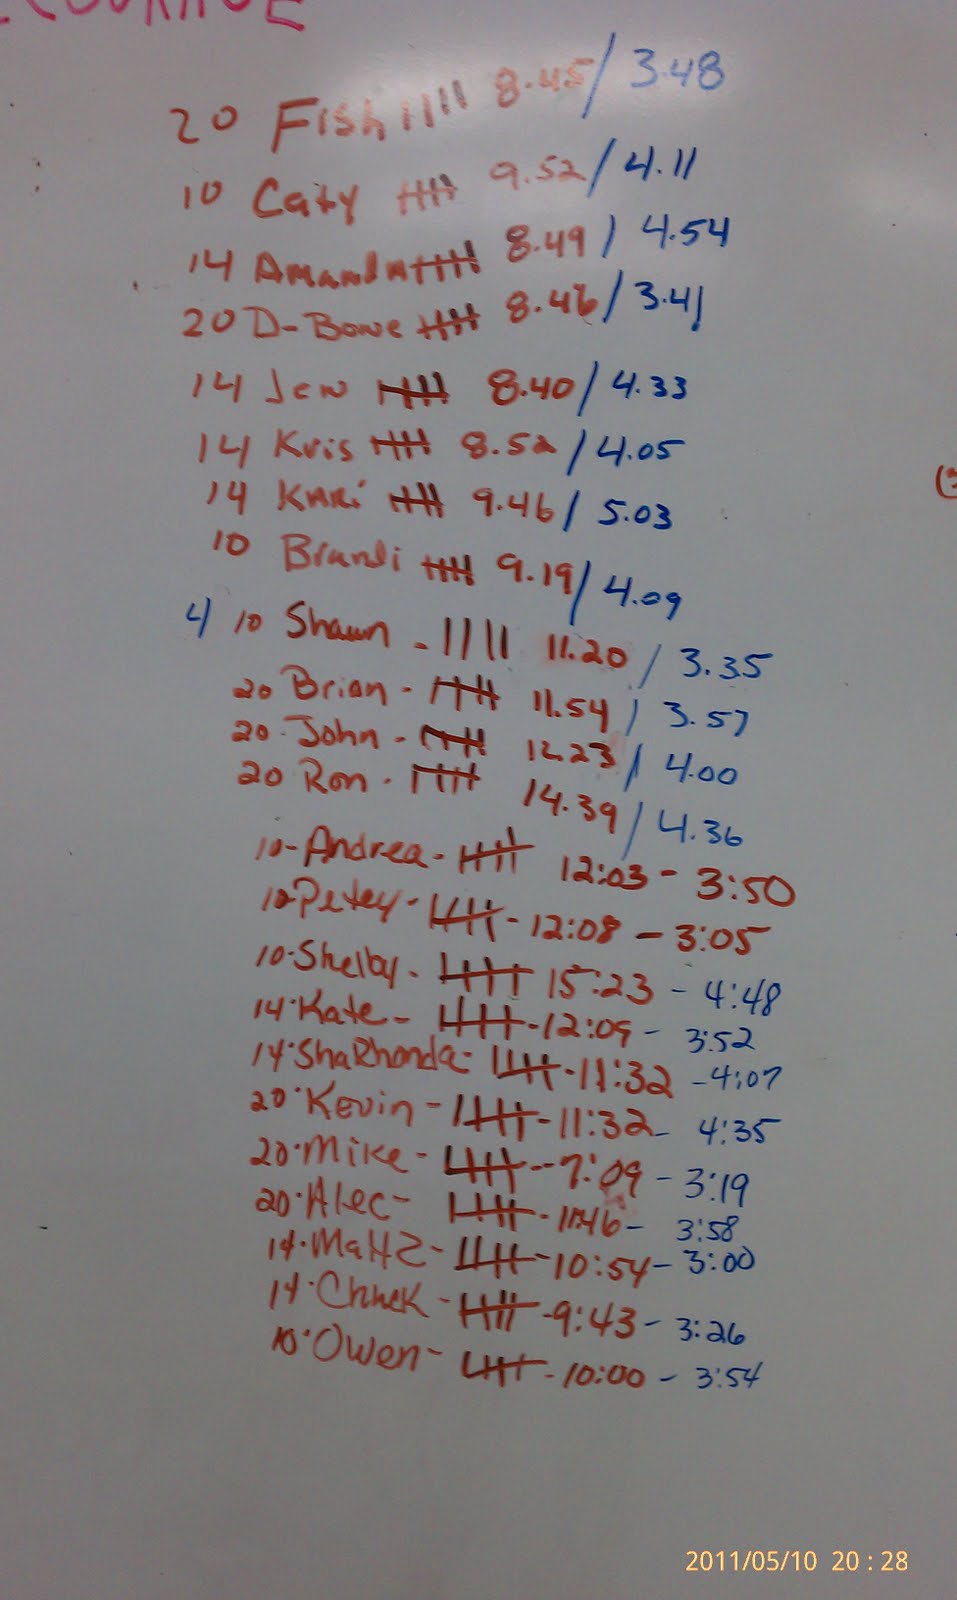 COURAGE
20 Fish |||| 8.45/ 3.48
10 Caty 9.52/ 4.11
14 Amanda 8.49/ 4.54
20 D-Bowe 8.46/ 3.41
14 Jen 8.40/ 4.33
14 Kris 8.52/ 4.05
14 Kari 9.46/ 5.03
10 Brandi 9.19/ 4.09
4 10 Shawn - |||| 11.20 / 3.35
20 Brian - 11.54 / 3.57
20 · John - 12.23 / 4.00
20 Ron - 14.39 / 4.36
10 - Andrea - 12:03 - 3:50
10 · Petey - 12:08 - 3:05
10 · Shelby - 15:23 - 4:48
14 · Kate - 12:09 - 3:52
14 · ShaRhonda - 11:32 - 4:07
20 · Kevin - 11:32 - 4:35
20 · Mike - 7:09 - 3:19
20 · Alec - 11:46 - 3:58
14 · Matt 2 - 10:54 - 3:00
14 · - 9:43 - 3:26
10 · Owen - 10:00 - 3:54
2011/05/10 20:28